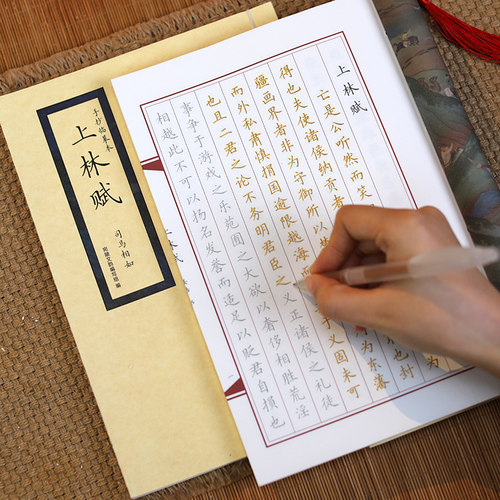 上林赋
亡是公听然而笑
为
得也夫使诸侯纳贡者
也封
疆画界者非为守御所以
为东藩
而外私肃慎捐国逾限越海而
于义固未可
也且二君之论不务明君臣之义正诸侯之礼徒
事争于游戏之乐苑囿之大欲以奢侈相胜荒淫
相越此不可以扬名发誉而适足以贬君自损也
上林赋
手抄临摹本
上林赋
司马相如